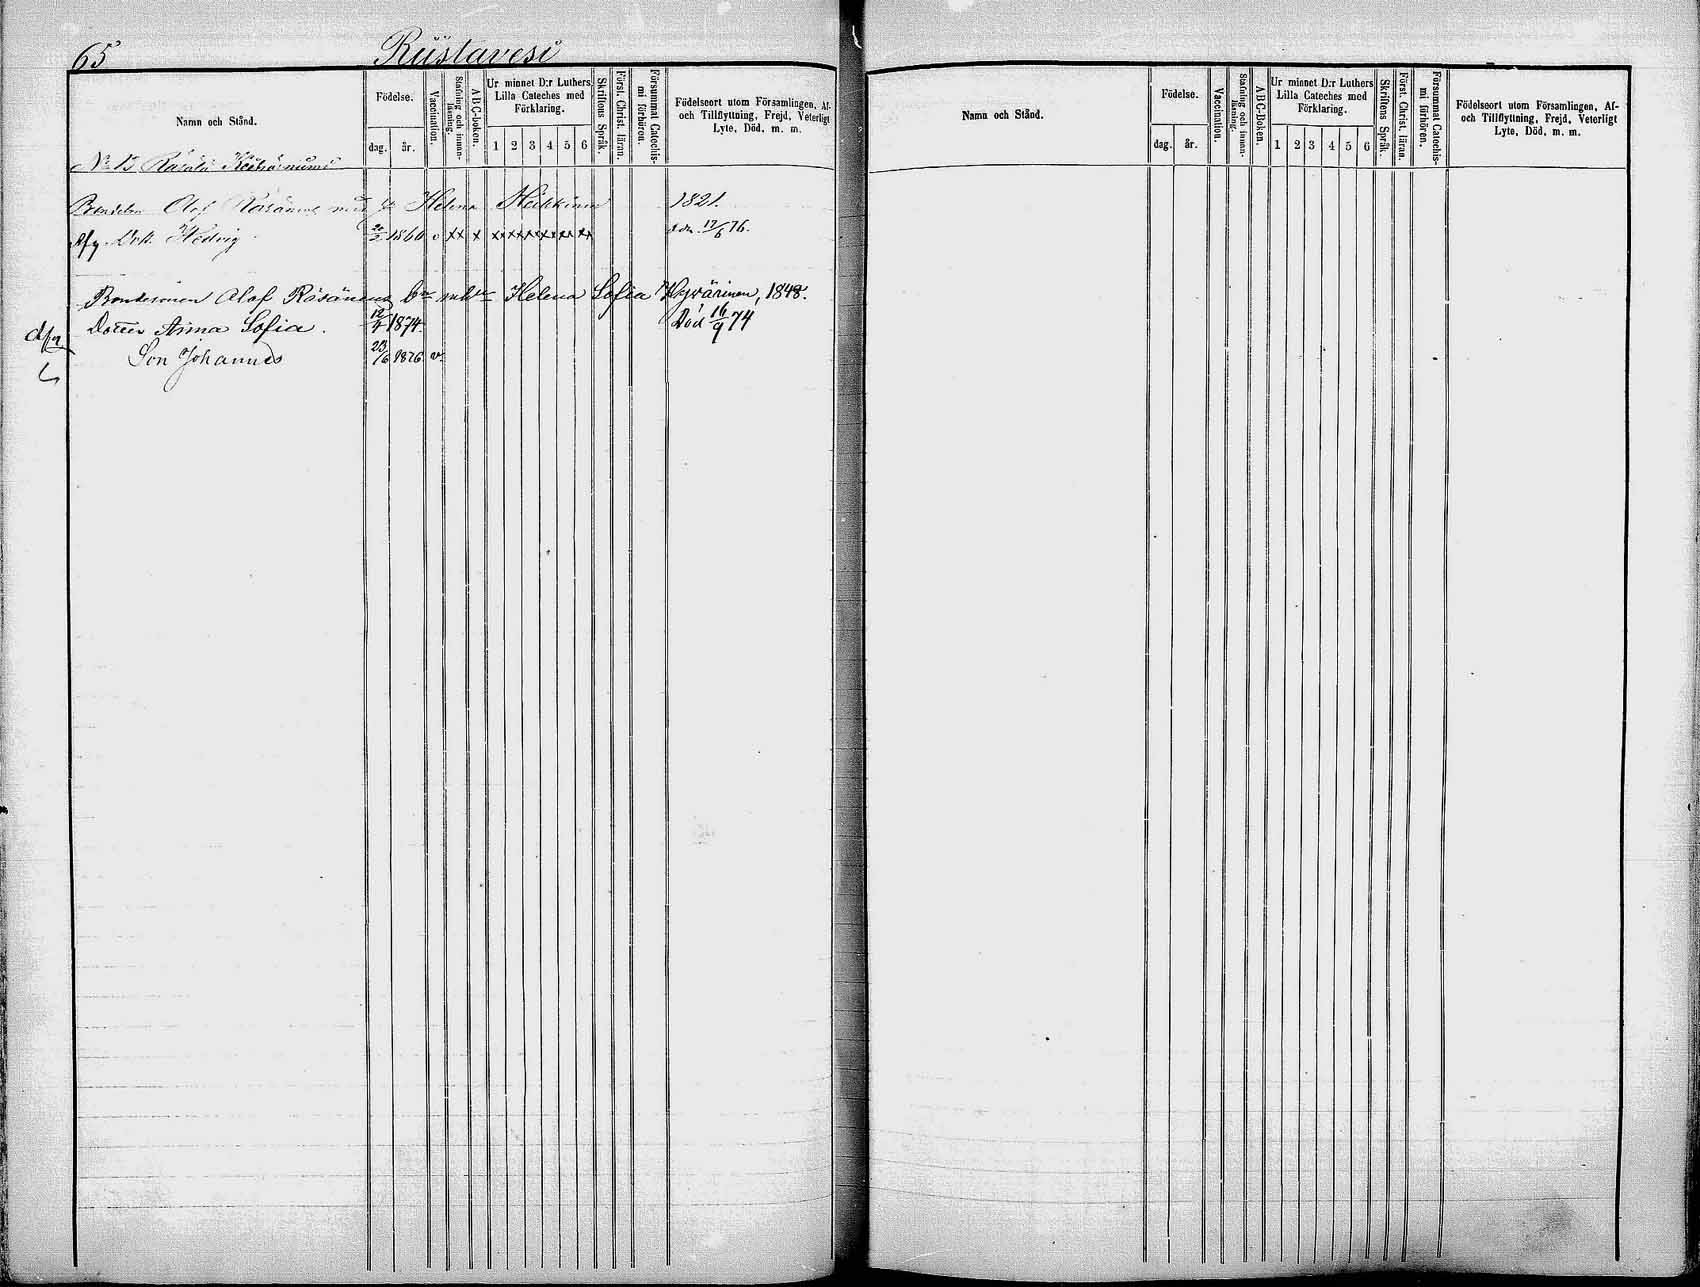 65 Riistavesi
Namn och Stånd.
Födelse.
dag. år.
Vaccination.
Stafning och innan-läsning.
ABC-boken.
Ur minnet D:r Luthers Lilla Cateches med Förklaring.
1 2 3 4 5 6
Skriftens Språk.
Först. Christ. läran.
Försummat Catechis-mi förhören.
Födelseort utom Församlingen, Af- och Tillflyttning, Frejd, Veterligt Lyte, Död, m. m.
No 13 Räsälä
Olof Räsänens Helena Heikkinen 1821.
Hedvig 1860 v xx x xxxxxxxxxxx 12/6 76.
Bondesonen Olof Räsänens Helena Sofia 1848.
Dotter Anna Sofia. 12/4 1874. Död 16/9 74
Son Johannes 23/6 1876 v.
Namn och Stånd.
Födelse.
dag. år.
Vaccination.
Stafning och innan-läsning.
ABC-boken.
Ur minnet D:r Luthers Lilla Cateches med Förklaring.
1 2 3 4 5 6
Skriftens Språk.
Först. Christ. läran.
Försummat Catechis-mi förhören.
Födelseort utom Församlingen, Af- och Tillflyttning, Frejd, Veterligt Lyte, Död, m. m.